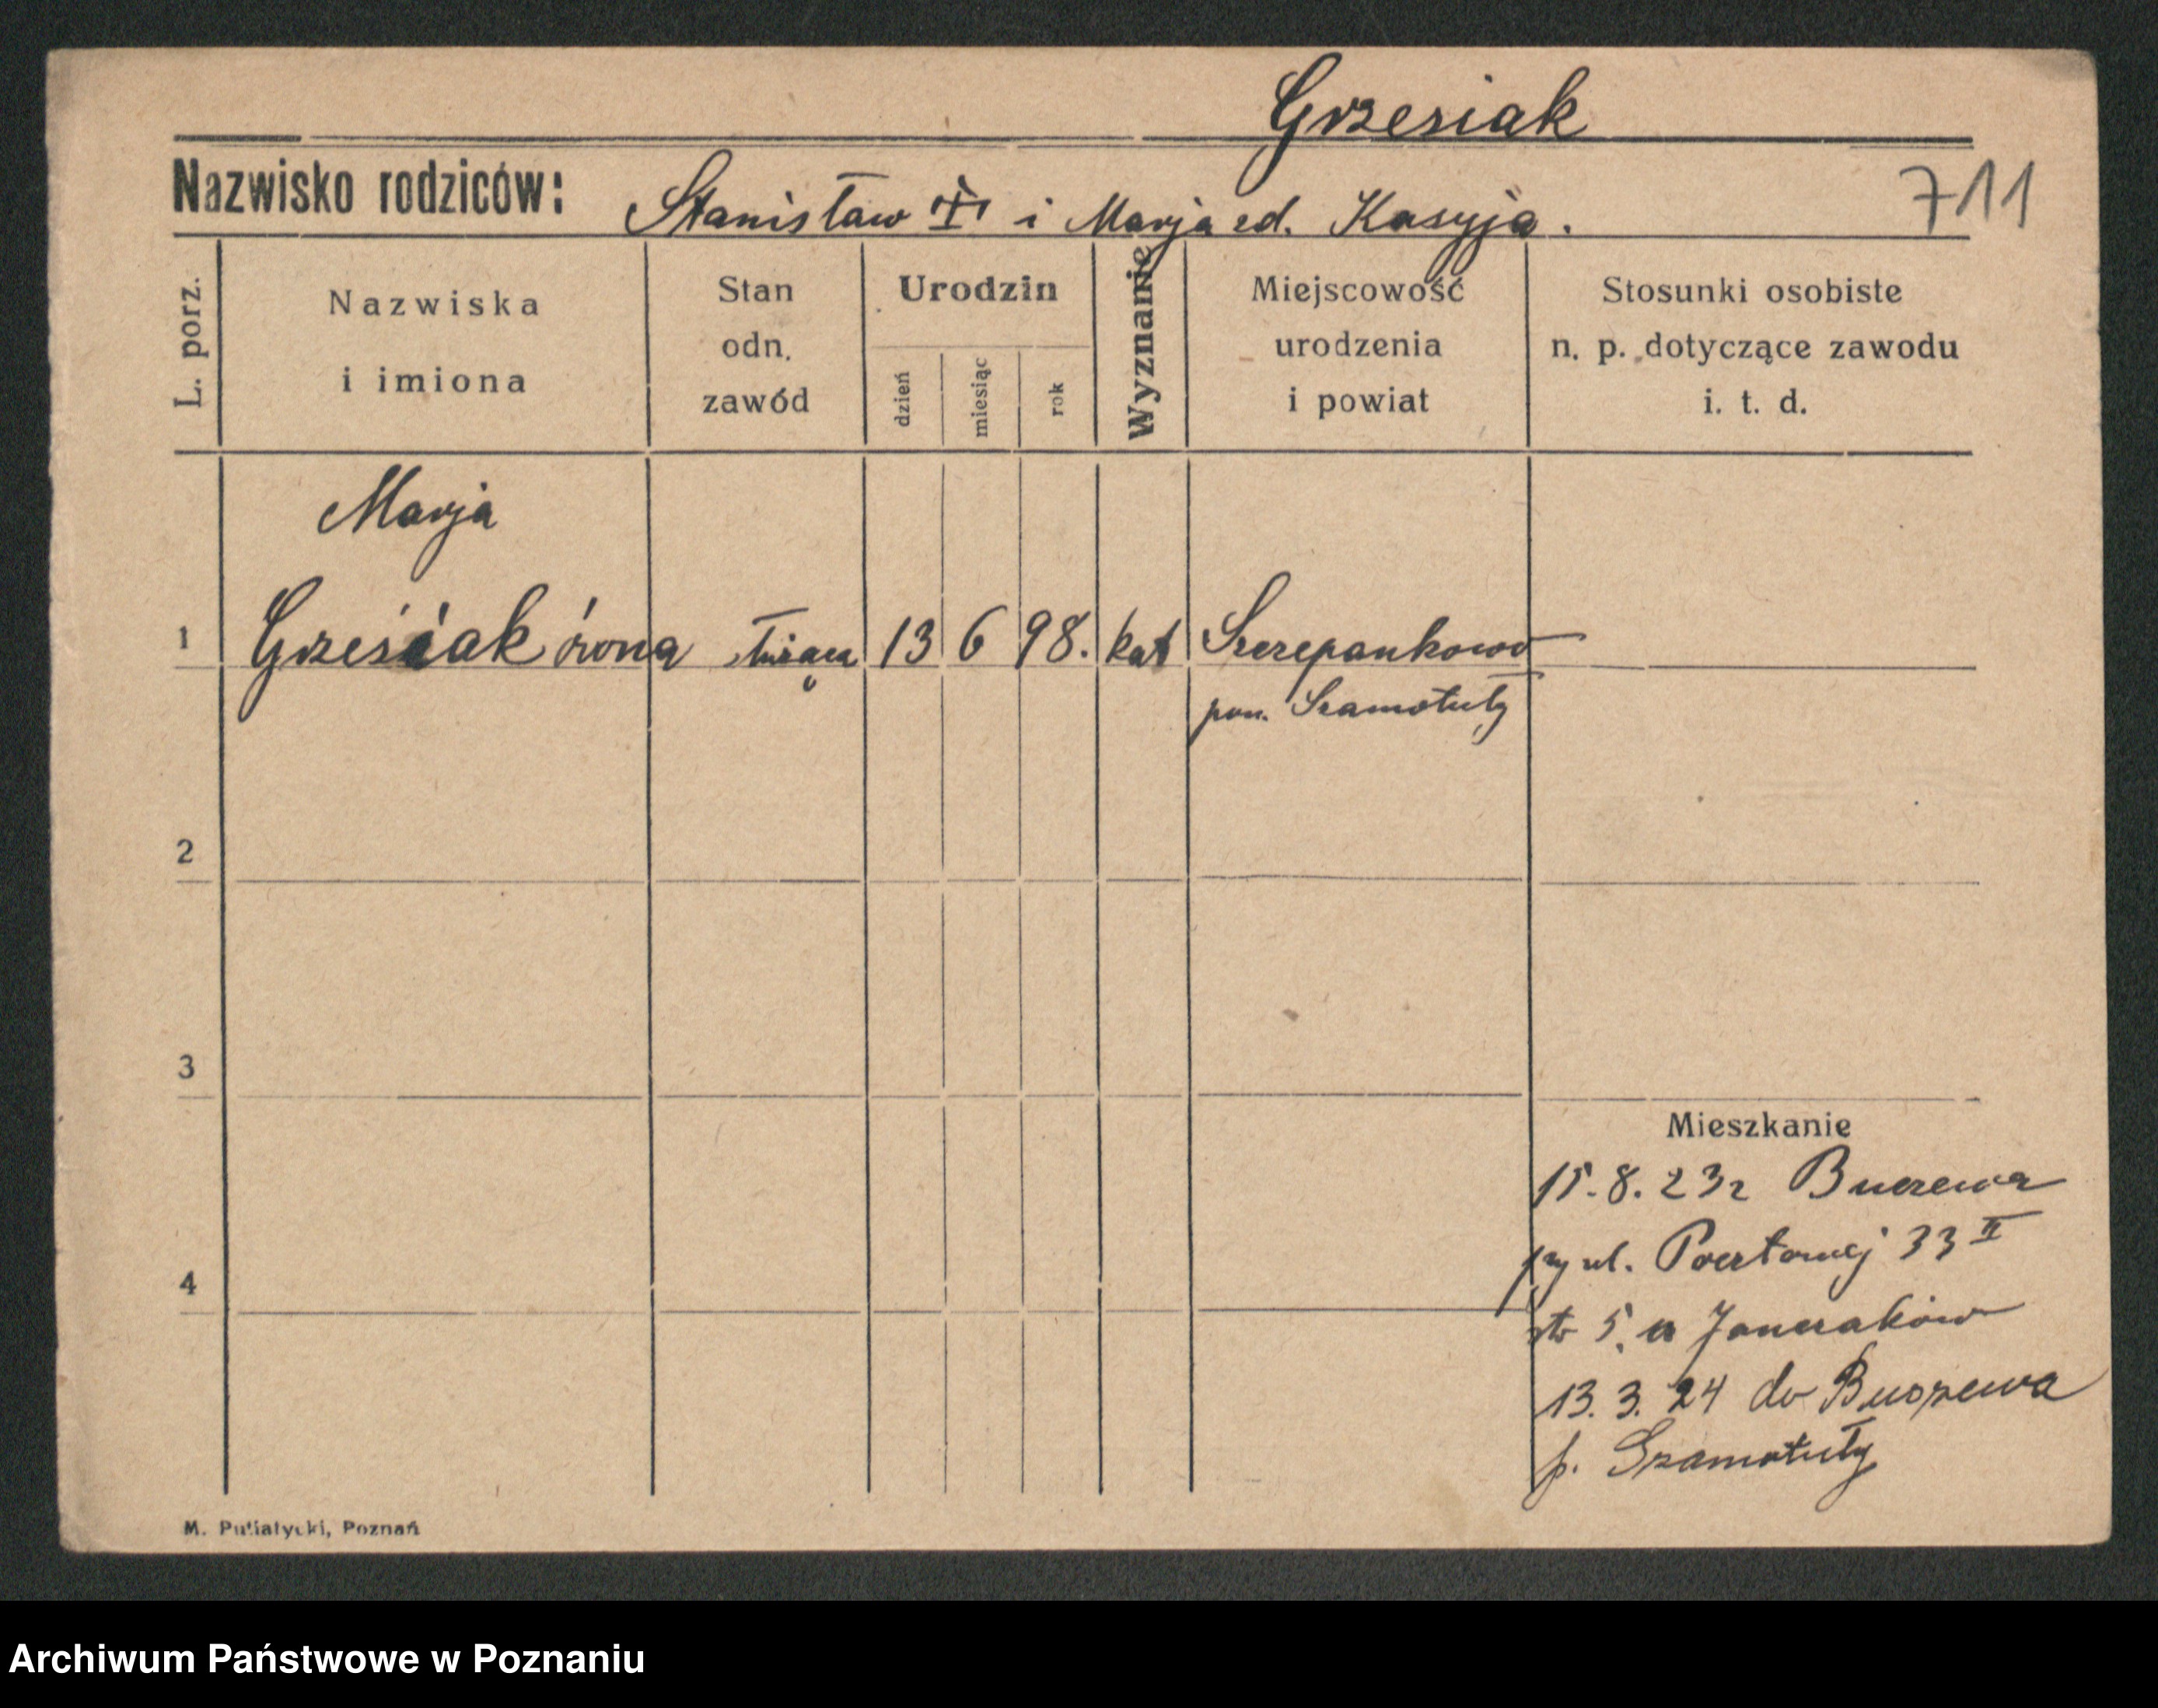 Grzesiak
Nazwisko rodziców: Stanisław i Marja zd. Kasyja.
711
L. porz.
Nazwiska
i imiona
Stan
odn.
zawód
Urodzin
dzień
miesiąc
rok
Wyznanie
Miejscowość
urodzenia
i powiat
Stosunki osobiste
n. p. dotyczące zawodu
i. t. d.
Marja
1 Grześiakówna służąca 13 6 98. kat Szczepankowo
pow. Szamotuły
2
3
4
Mieszkanie
15.8.23r Buszewa
przy ul. Pocztowej 33 II
5. u Janczaków
13.3.24 do Buszewa
p. Szamotuły
M. Putiatycki, Poznań
Archiwum Państwowe w Poznaniu